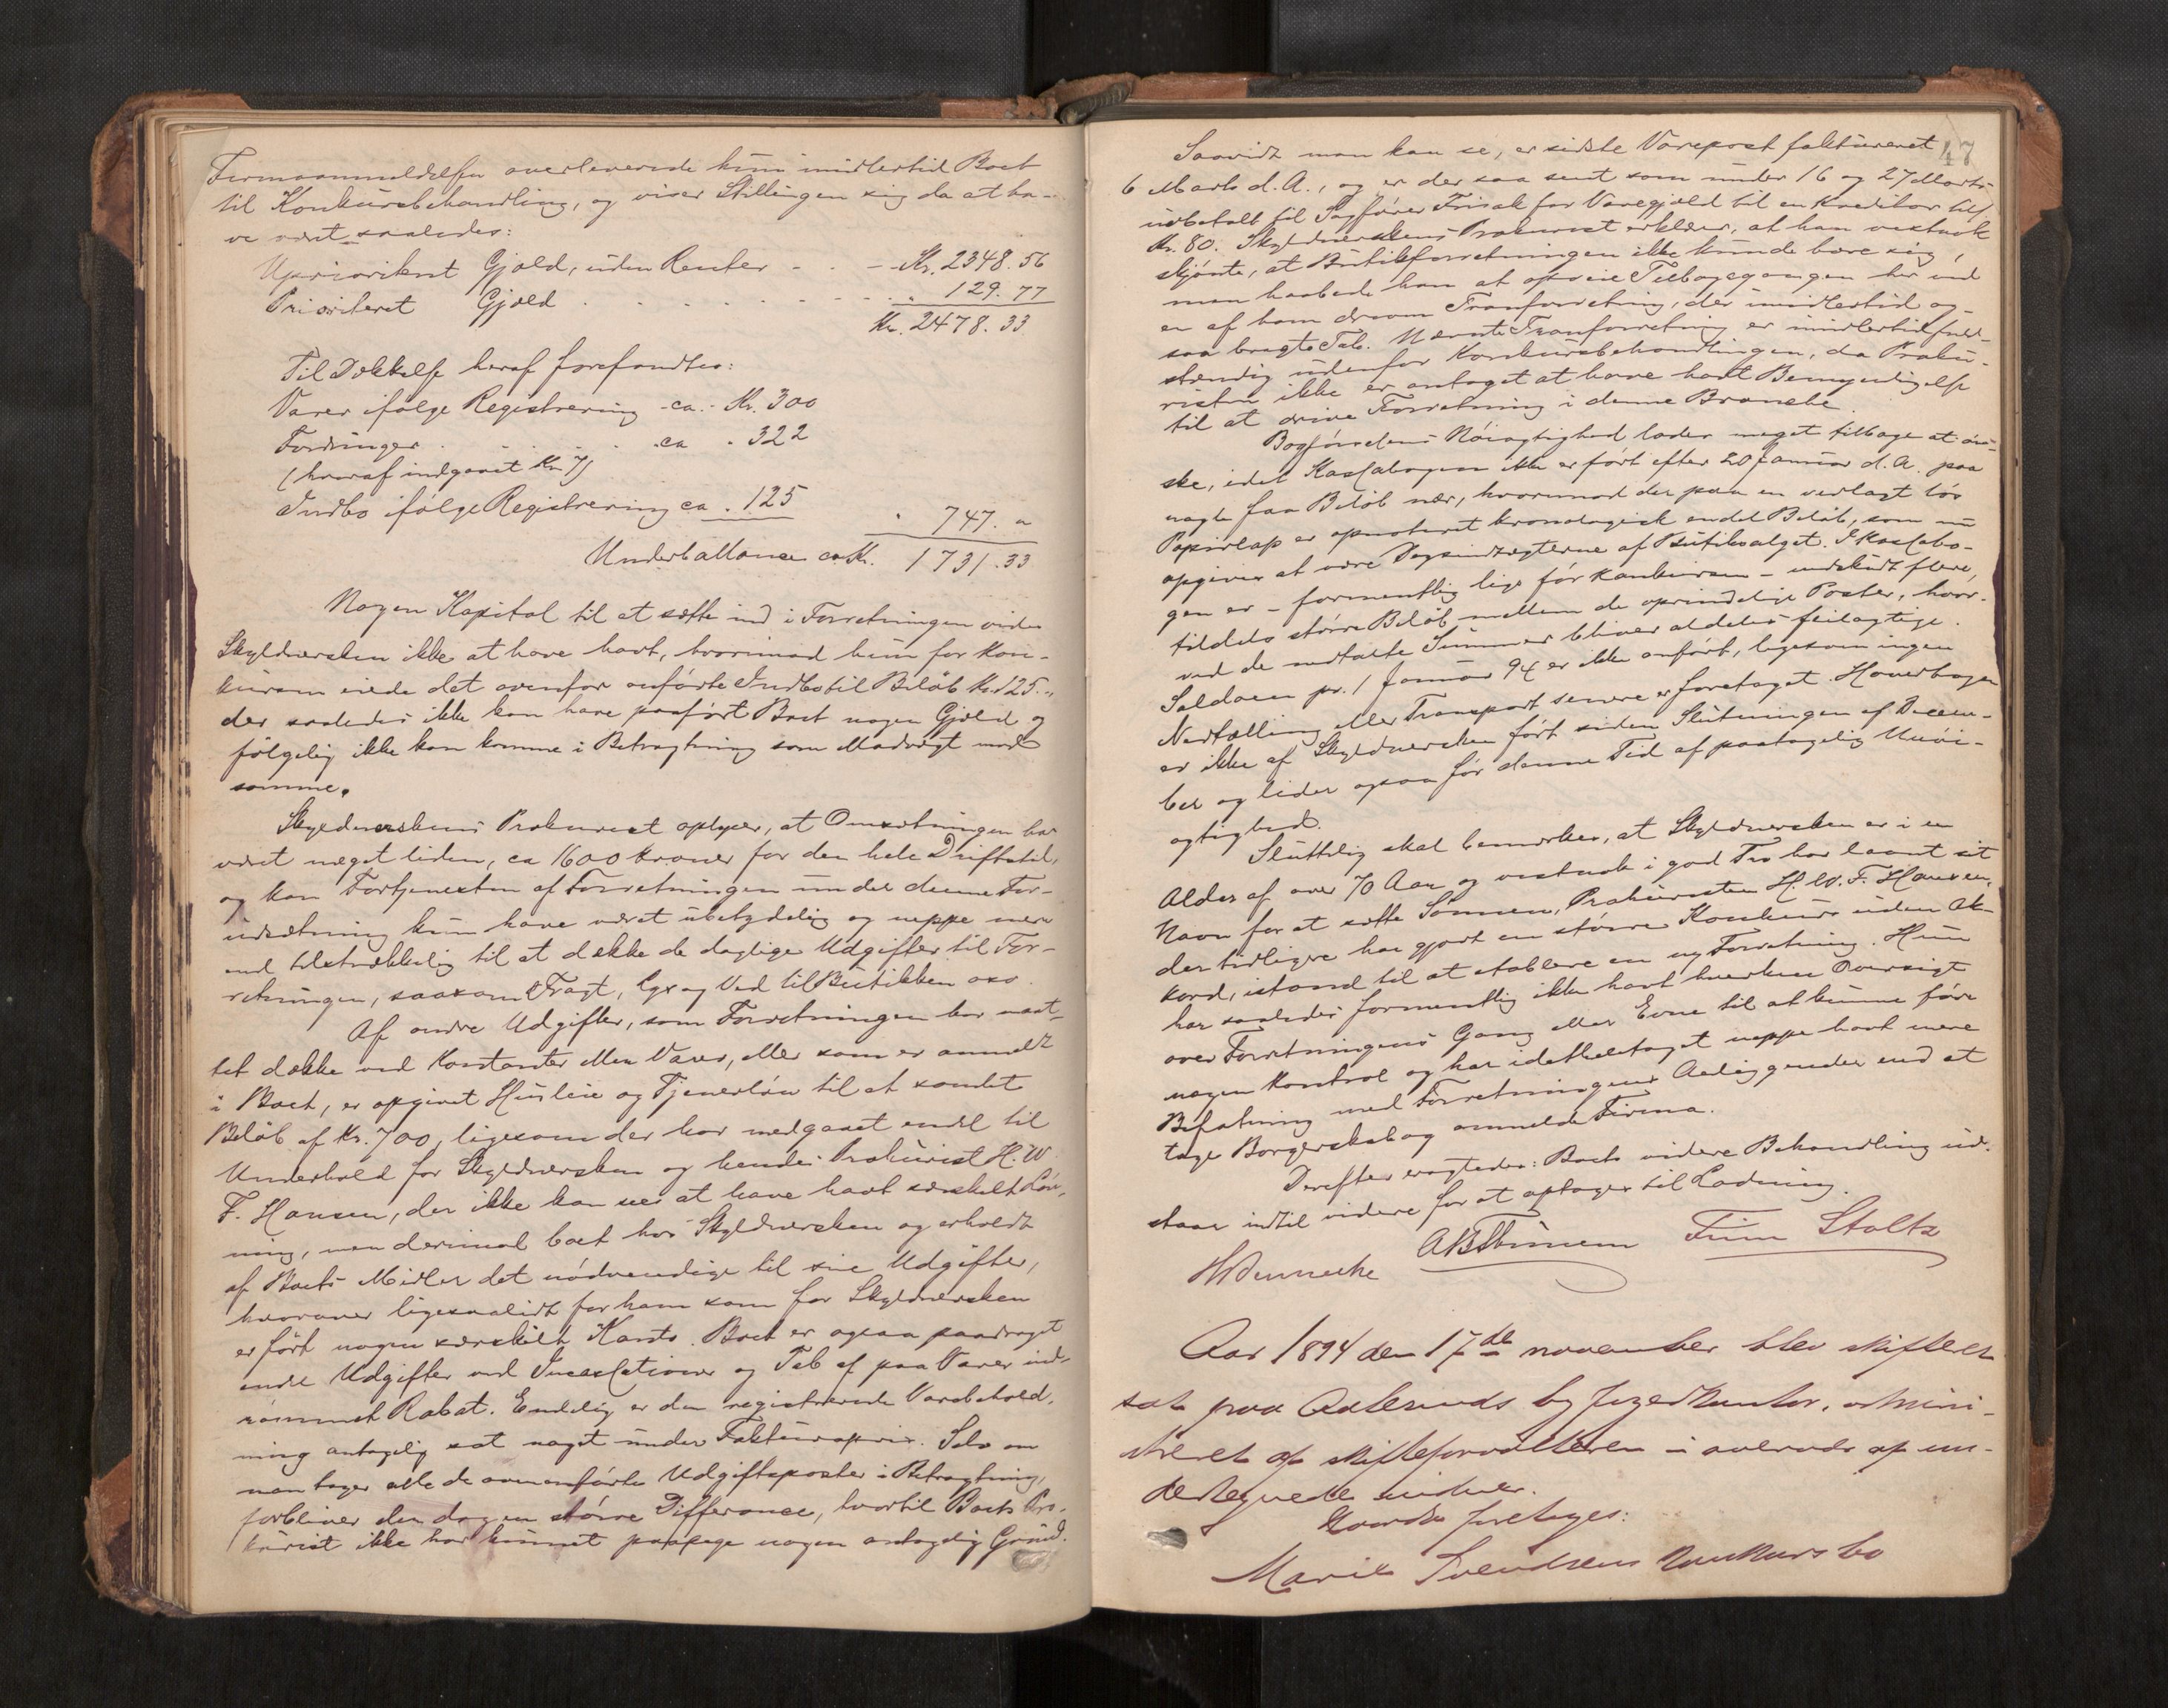 Firmaanmeldelsen overleverede hun imidlertid Boet
til Konkursbehandling, og viser Stillingen sig da at ha-
ve været saaledes:
Uprioriteret Gjæld, uden Renter - . . - Kr. 2348.56
Prioriteret Gjæld . . . . . . . . . 129.77
Kr. 2478.33
Til Dækkelse heraf forefandtes:
Varer ifølge Registrering ca. Kr. 300
Fordringer . . . . . ca . 322
(hvoraf indgaaet Kr. 7)
Indbo ifølge Registrering ca . 125
" 747. "
Underballance ca Kr. 1731.33
Nogen Kapital til at sætte ind i Forretningen vides
Skyldnersken ikke at have havt, hvorimod hun før Kon-
kursen eiede det ovenfor anførte Indbo til Beløb Kr. 125.,,
der saaledes ikke kan have paaført Boet nogen Gjæld og
følgelig ikke kan komme i Betragtning som Modvægt mod
samme.
Skyldnerskens Prokurist oplyser, at Omsætningen har
været meget liden, ca 1600 Kroner for den hele Driftstid,
og kan Fortjenesten af Forretningen under denne For-
udsætning kun have været ubetydelig og neppe mere
end tilstrækkelig til at dække de daglige Udgifter til For-
retningen, saasom Fragt, Lys og Ved til Butikken osv.
Af andre Udgifter, som Forretningen har maat-
tet dække ved Kontanter eller Varer, eller som er anmeldt
i Boet, er opgivet Husleie og Tjenerløn til et samlet
Beløb af Kr. 700, ligesom der har medgaaet endel til
Underhold for Skyldnersken og hendes Prokurist H. W.
F. Hansen, der ikke kan sees at have havt særskilt Løn-
ning, men derimod boet hos Skyldnersken og erholdt
af Boets Midler det nødvendige til sine Udgifter,
hvorover ligesaalidt for ham som for Skyldnersken
er ført nogen særskilt Konto. Boet er ogsaa paadraget
endel Udgifter ved Incassationer og Tab af paa Varer ind-
rømmet Rabat. Endelig er den registrerede Varebehold-
ning antagelig sat noget under Fakturapris. Selv om
man tager alle de ovenanførte Udgiftsposter i Betragtning,
forbliver der dog en større Difference, hvortil Boets Pro-
kurist ikke har kunnet paapege nogen antagelig Grund.
47
Saavidt man kan se, er sidste Varepost faktureret
6 Marts d. A., og er der saa sent som under 16 og 27 Marts
udbetalt til Sagfører Frisak for Varegjæld til en Kreditor tils.
Kr. 80. Skyldnerskens Prokurist erklærer, at han vistnok
skjønte, at Butikforretningen ikke kunde bære sig,
men haabede han at opveie Tilbagegangen her ved
en af ham dreven Tranforretning, der imidlertid og-
saa bragte Tab. Nævnte Tranforretning er imidlertid fuld-
stændig udenfor Konkursbehandlingen, da Proku-
risten ikke er antaget at have havt Bemyndigelse
til at drive Forretning i denne Branche.
Bogførselens Nøiagtighed lader meget tilbage at øn-
ske, idet Kassabogen ikke er ført efter 20 Januar d. A. paa
nogle faa Beløb nær, hvorimod der paa en vedlagt løs
Papirlap er opnoteret kronologisk endel Beløb, som nu
opgives at være Dagsindtægterne af Butiksalget. I Kassabo-
gen er – formentlig lige før Konkursen – indskudt flere,
tildels større Beløb mellem de oprindelige Poster, hvor-
ved de nedtalte Summer bliver aldeles feilagtige.
Saldoen pr. 1 Januar 94 er ikke anført, ligesom ingen
Nedtælling eller Transport senere er foretaget. Hovedbogen
er ikke af Skyldnersken ført siden Slutningen af Decem-
ber og lider ogsaa før denne Tid af paatagelig Unøi-
agtighed.
Sluttelig skal bemærkes, at Skyldnersken er i en
Alder af over 70 Aar og vistnok i god Tro har laant sit
Navn for at sætte Sønnen, Prokuristen H. W. F. Hansen,
der tidligere har gjort en større Konkurs uden Ak-
kord, istand til at etablere en ny Forretning. Hun
har saaledes formentlig ikke havt hverken Oversigt
over Forretningens Gang eller Evne til at kunne føre
nogen Kontrol og har idetheletaget neppe havt mere
Befatning med Forretningens Anliggender end at
tage Borgerskab og anmelde Firma.
Derefter eragtedes: Boets videre Behandling ud-
staar indtil videre for at optages til Lodning.
Finn Stoltz
Aar 1894 den 17de november blev skifteret
sat paa Aalesunds byfogedkontor, admini-
streret af skifteforvalteren i overvær af un-
dertegnede vidner.
Hvorda foretoges:
Marie Svendsens konkursbo